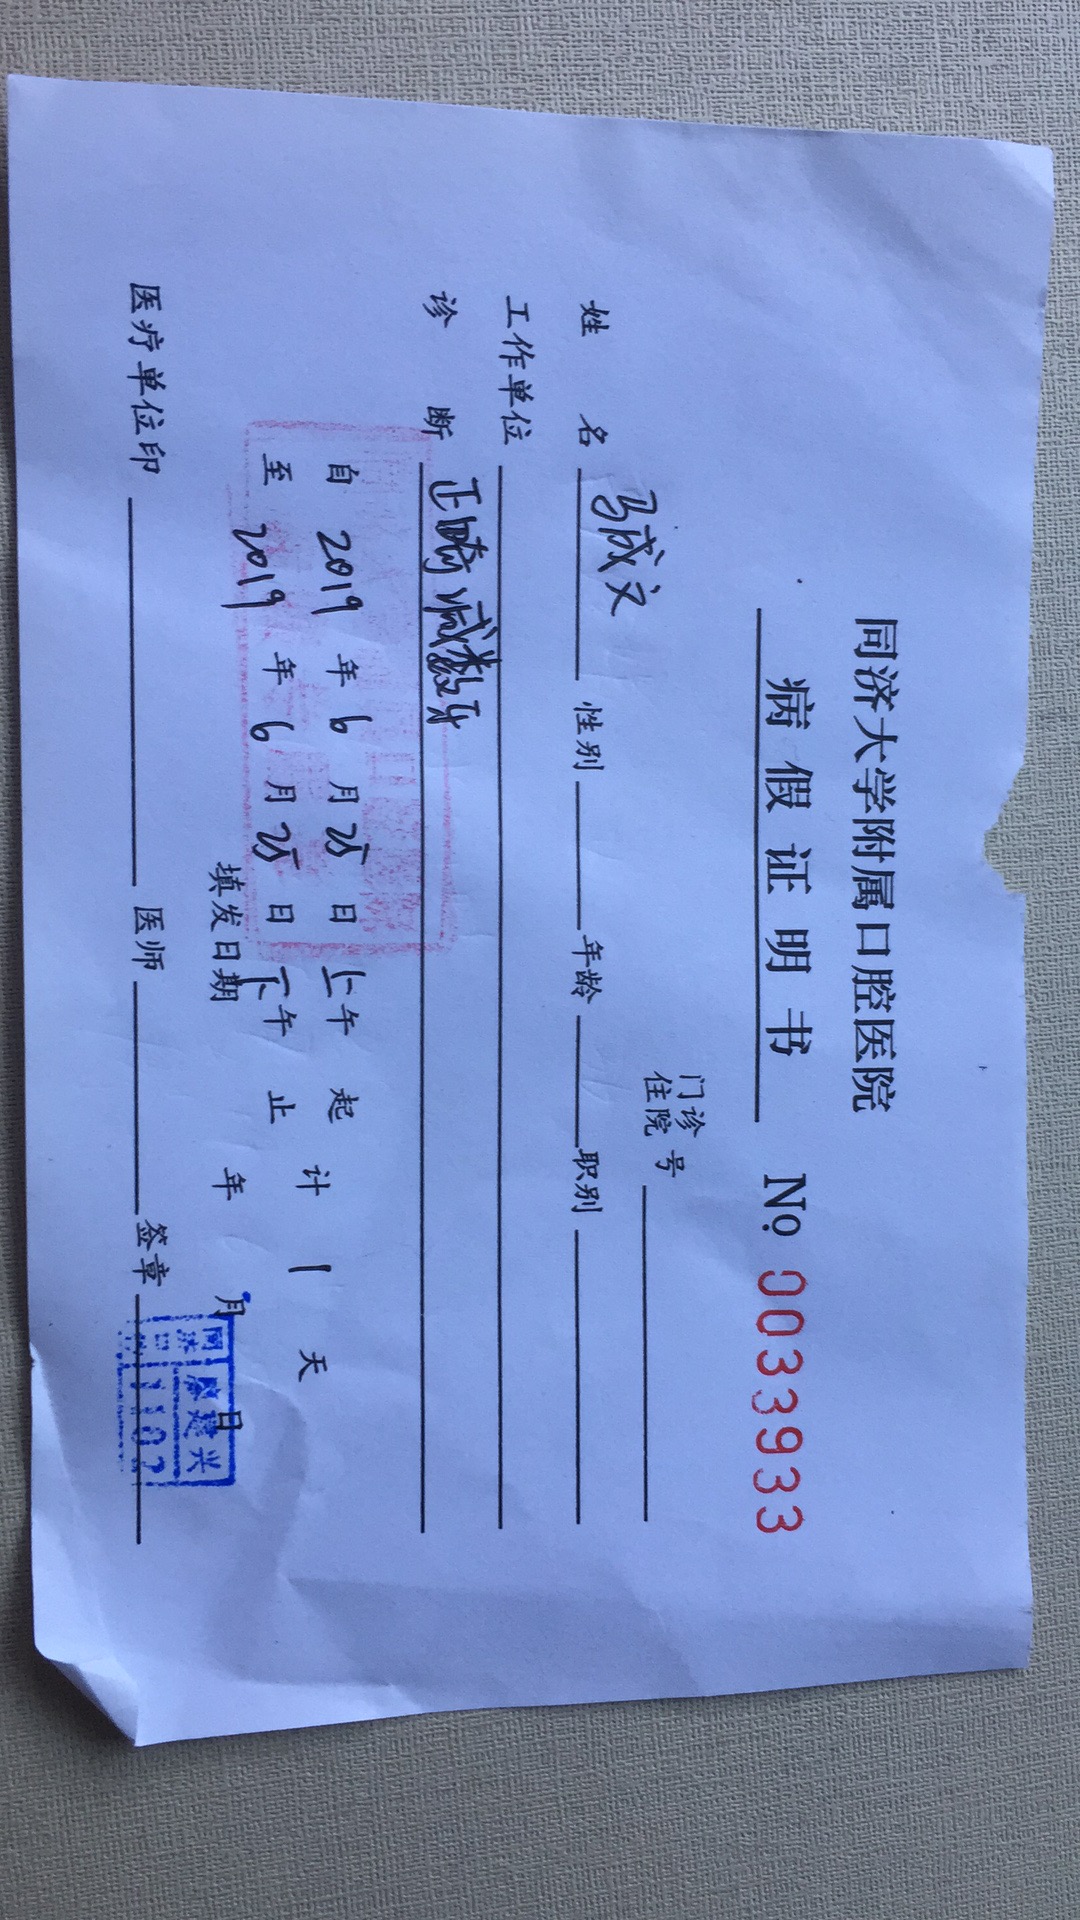 同济大学附属口腔医院
病假证明书 № 0033933
门诊
住院 号
姓名 马成文 性别 年龄 职别
工作单位
诊断 正畸减数牙
自 2019 年 6 月 25 日 上午 起
至 2019 年 6 月 25 日 下午 止 计 1 天
填发日期 年 月 日
医疗单位印 医师 签章
建兴
1102